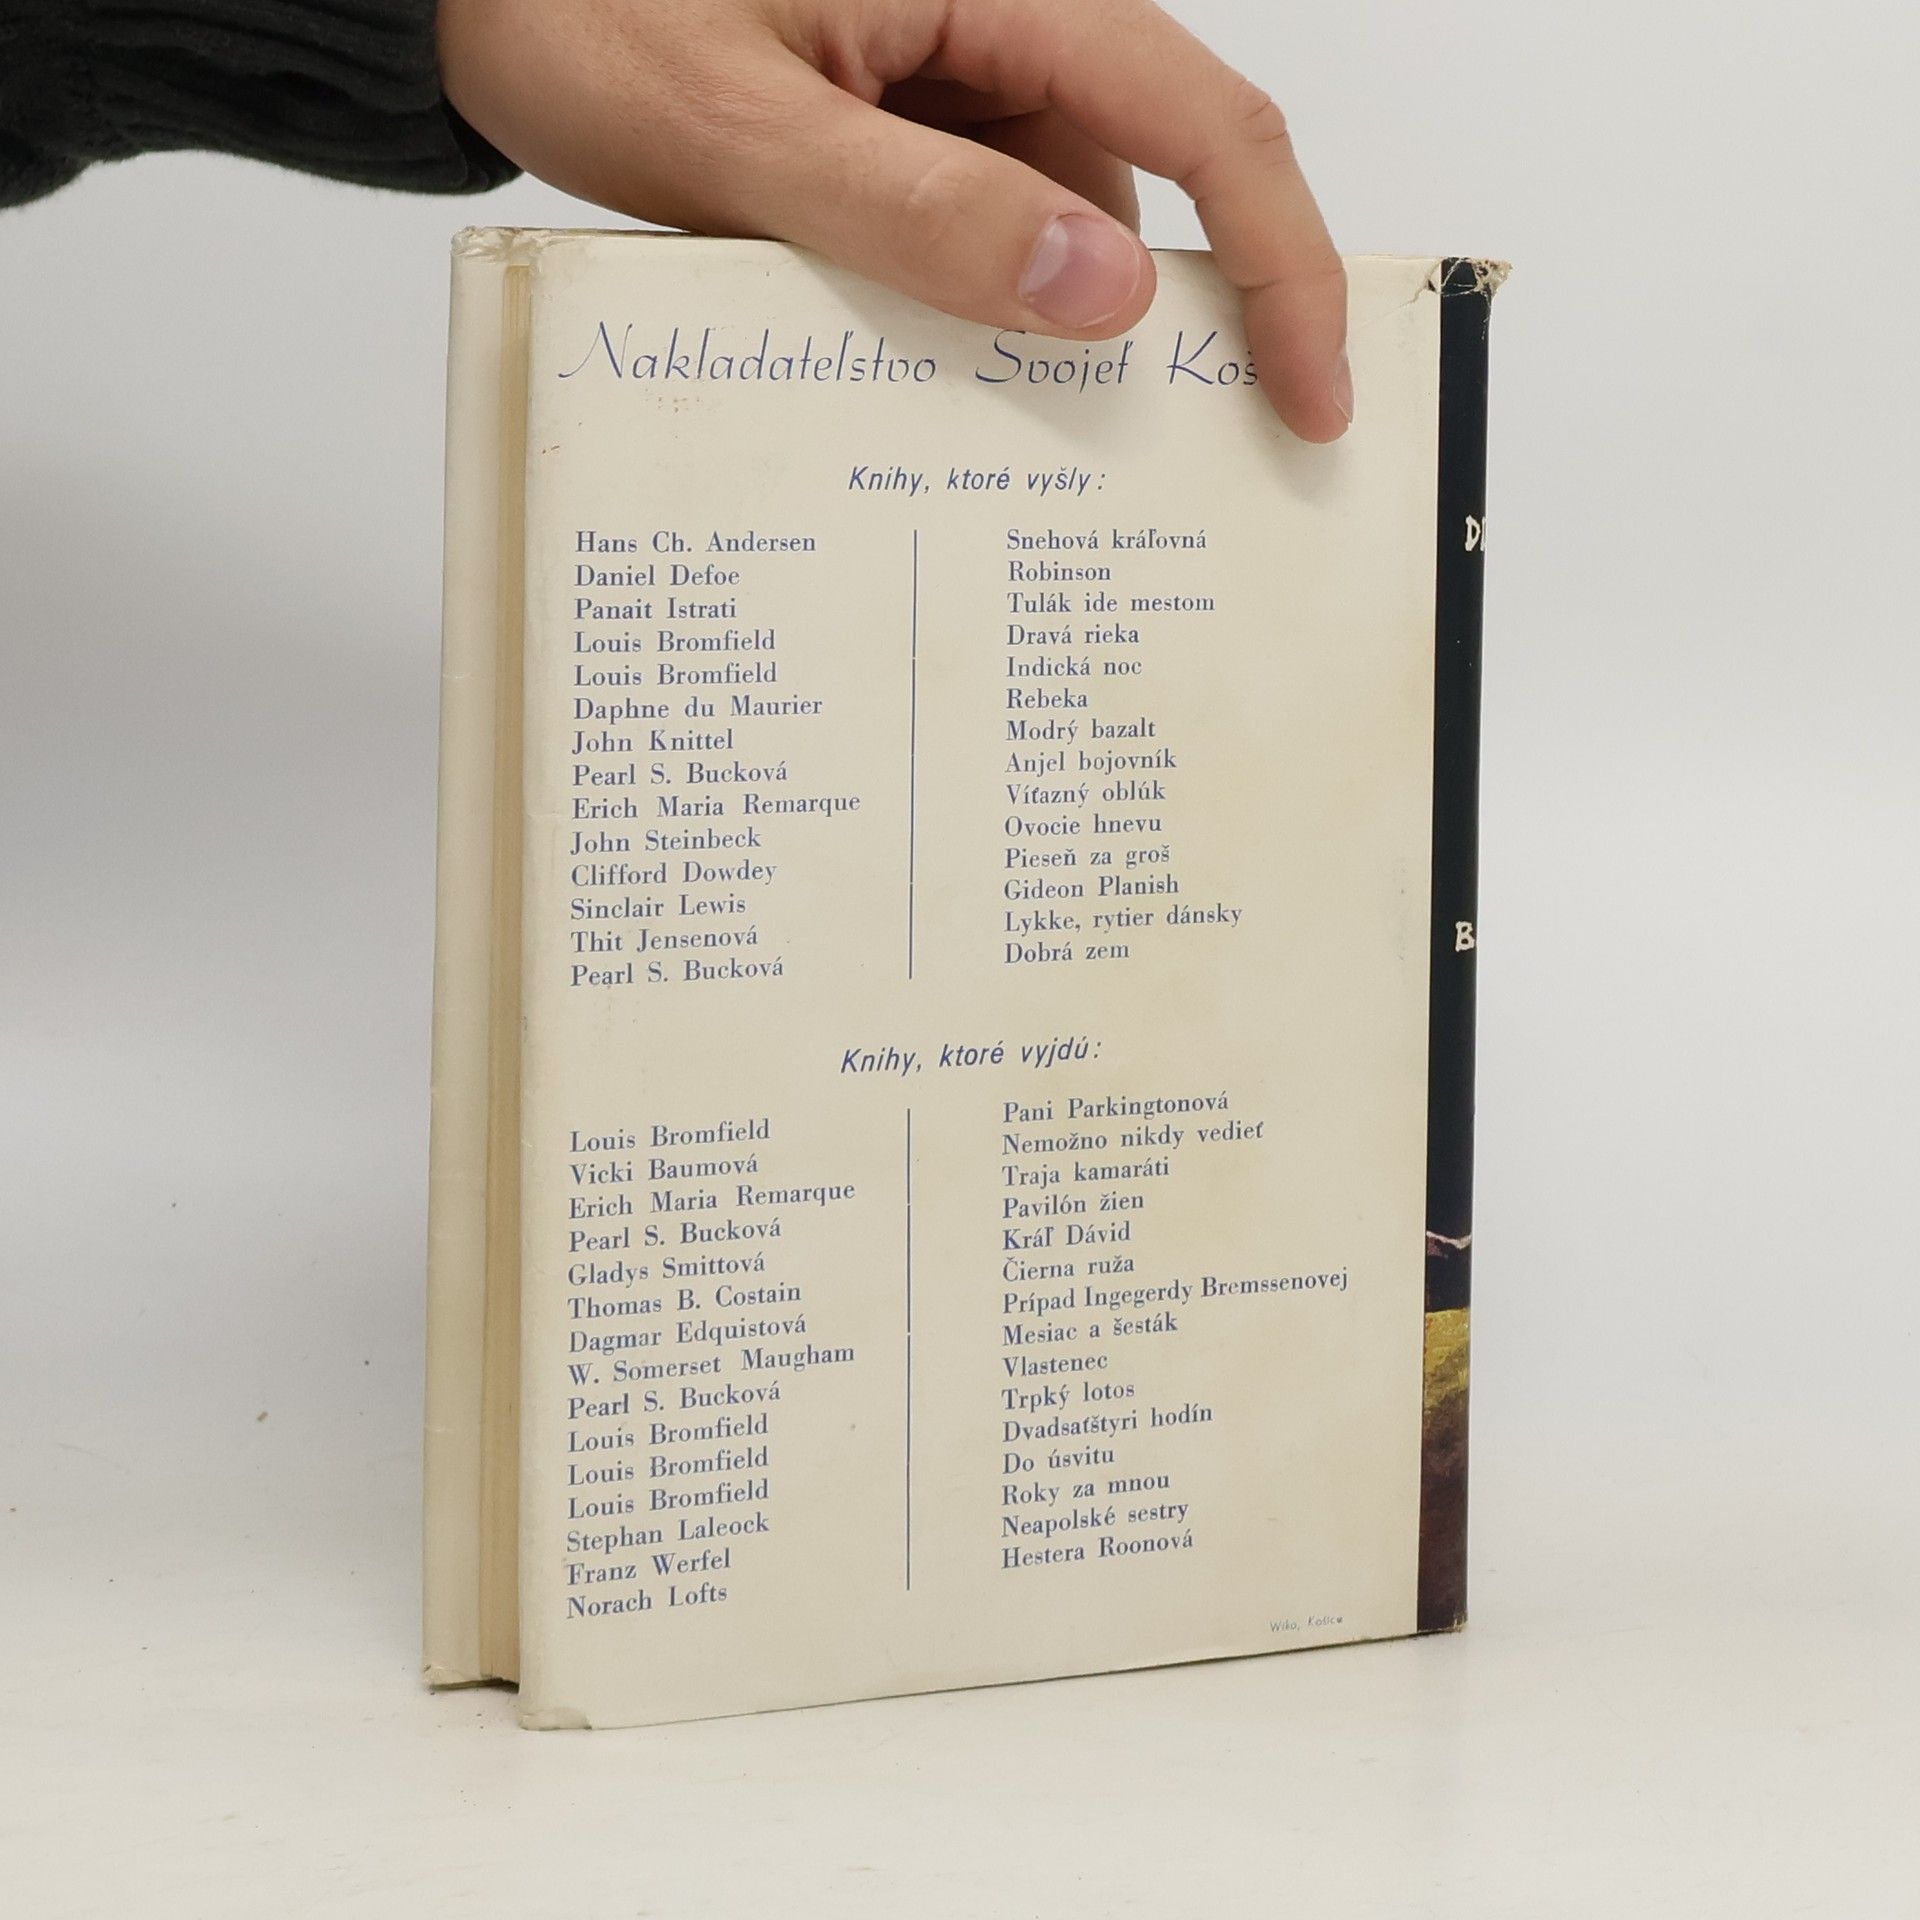 Nakladateľstvo Svojeť
Knihy, ktoré vyšly:
Hans Ch. Andersen Snehová kráľovná
Daniel Defoe Robinson
Panait Istrati Tulák ide mestom
Louis Bromfield Dravá rieka
Louis Bromfield Indická noc
Daphne du Maurier Rebeka
John Knittel Modrý bazalt
Pearl S. Bucková Anjel bojovník
Erich Maria Remarque Víťazný oblúk
John Steinbeck Ovocie hnevu
Clifford Dowdey Pieseň za groš
Sinclair Lewis Gideon Planish
Thit Jensenová Lykke, rytier dánsky
Pearl S. Bucková Dobrá zem
Knihy, ktoré vyjdú:
Louis Bromfield Pani Parkingtonová
Vicki Baumová Nemožno nikdy vedieť
Erich Maria Remarque Traja kamaráti
Pearl S. Bucková Pavilón žien
Gladys Smittová Kráľ Dávid
Thomas B. Costain Čierna ruža
Dagmar Edquistová Prípad Ingegerdy Bremssenovej
W. Somerset Maugham Mesiac a šesták
Pearl S. Bucková Vlastenec
Louis Bromfield Trpký lotos
Louis Bromfield Dvadsaťštyri hodín
Louis Bromfield Do úsvitu
Stephan Laleock Roky za mnou
Franz Werfel Neapolské sestry
Norach Lofts Hestera Roonová
Wiko, Košice